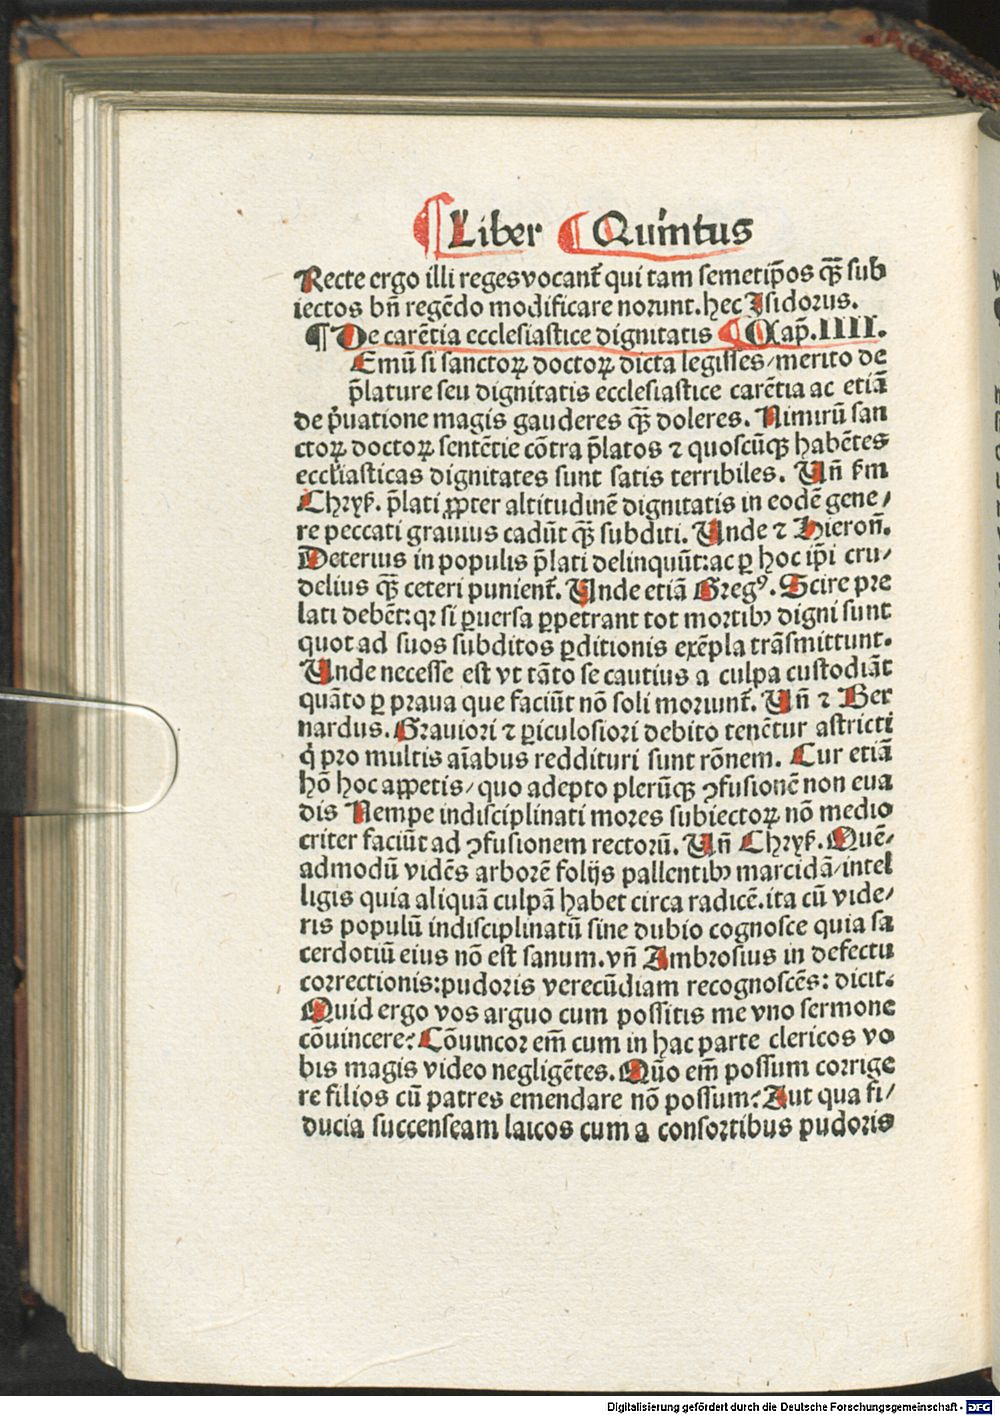 Liber Quintus
Recte ergo illi reges vocant᷑ qui tam semetip̄os qȝ̄ sub
iectos bn̄ regēdo modificare norunt. hec Isidorus.
¶ De carētia ecclesiastice dignitatis Cap̄. IIII.
Emū si sanctoꝝ doctoꝝ dicta legisses/ merito de
p̄lature seu dignitatis ecclesiastice carētia ac etiā
de p̓uatione magis gauderes qȝ̄ doleres. Nimirū san
ctoꝝ doctoꝝ sentētie cōtra p̄latos ⁊ quoscūqȝ habētes
eccl̓iasticas dignitates sunt satis terribiles. Un̄ ẜm
Chryẜ. p̄lati ꝓpter altitudinē dignitatis in eodē gene/
re peccati grauius cadūt qȝ̄ subditi. Unde ⁊ Hieron̄.
Deterius in populis p̄lati delinquūt: ac ꝑ hoc ip̄i cru/
delius qȝ̄ ceteri punient᷑. Unde etiā Gregꝰ. Scire pre
lati debēt: qꝛ si ꝑuersa ꝑpetrant tot mortibꝫ digni sunt
quot ad suos subditos ꝑditionis exēpla trāsmittunt.
Unde necesse est vt tāto se cautius a culpa custodiāt
quāto ꝑ praua que faciūt nō soli moriunt᷑. Un̄ ⁊ Ber
nardus. Grauiori ⁊ ꝑiculosiori debito tenētur astricti
q̓ pro multis aīabus reddituri sunt rōnem. Cur etiā
hō hoc appetis/ quo adepto plerūqȝ ꝯfusionē non eua
dis Nempe indisciplinati mores subiectoꝝ nō medio
criter faciūt ad ꝯfusionem rectorū. Un̄ Chryẜ. Quē/
admodū vidēs arborē folijs pallentibꝫ marcidā/ intel
ligis quia aliquā culpā habet circa radicē. ita cū vide/
ris populū indisciplinatū sine dubio cognosce quia sa
cerdotiū eius nō est sanum. vn̄ Ambrosius in defectu
correctionis: pudoris verecūdiam recognoscēs: dicit.
Quid ergo vos arguo cum possitis me vno sermone
cōuincere? Cōuincor em̄ cum in hac parte clericos vo
bis magis video negligētes. Quō em̄ possum corrige
re filios cū patres emendare nō possum? Aut qua fi/
ducia succenseam laicos cum a consortibus pudoris
Digitalisierung gefördert durch die Deutsche Forschungsgemeinschaft - DFG